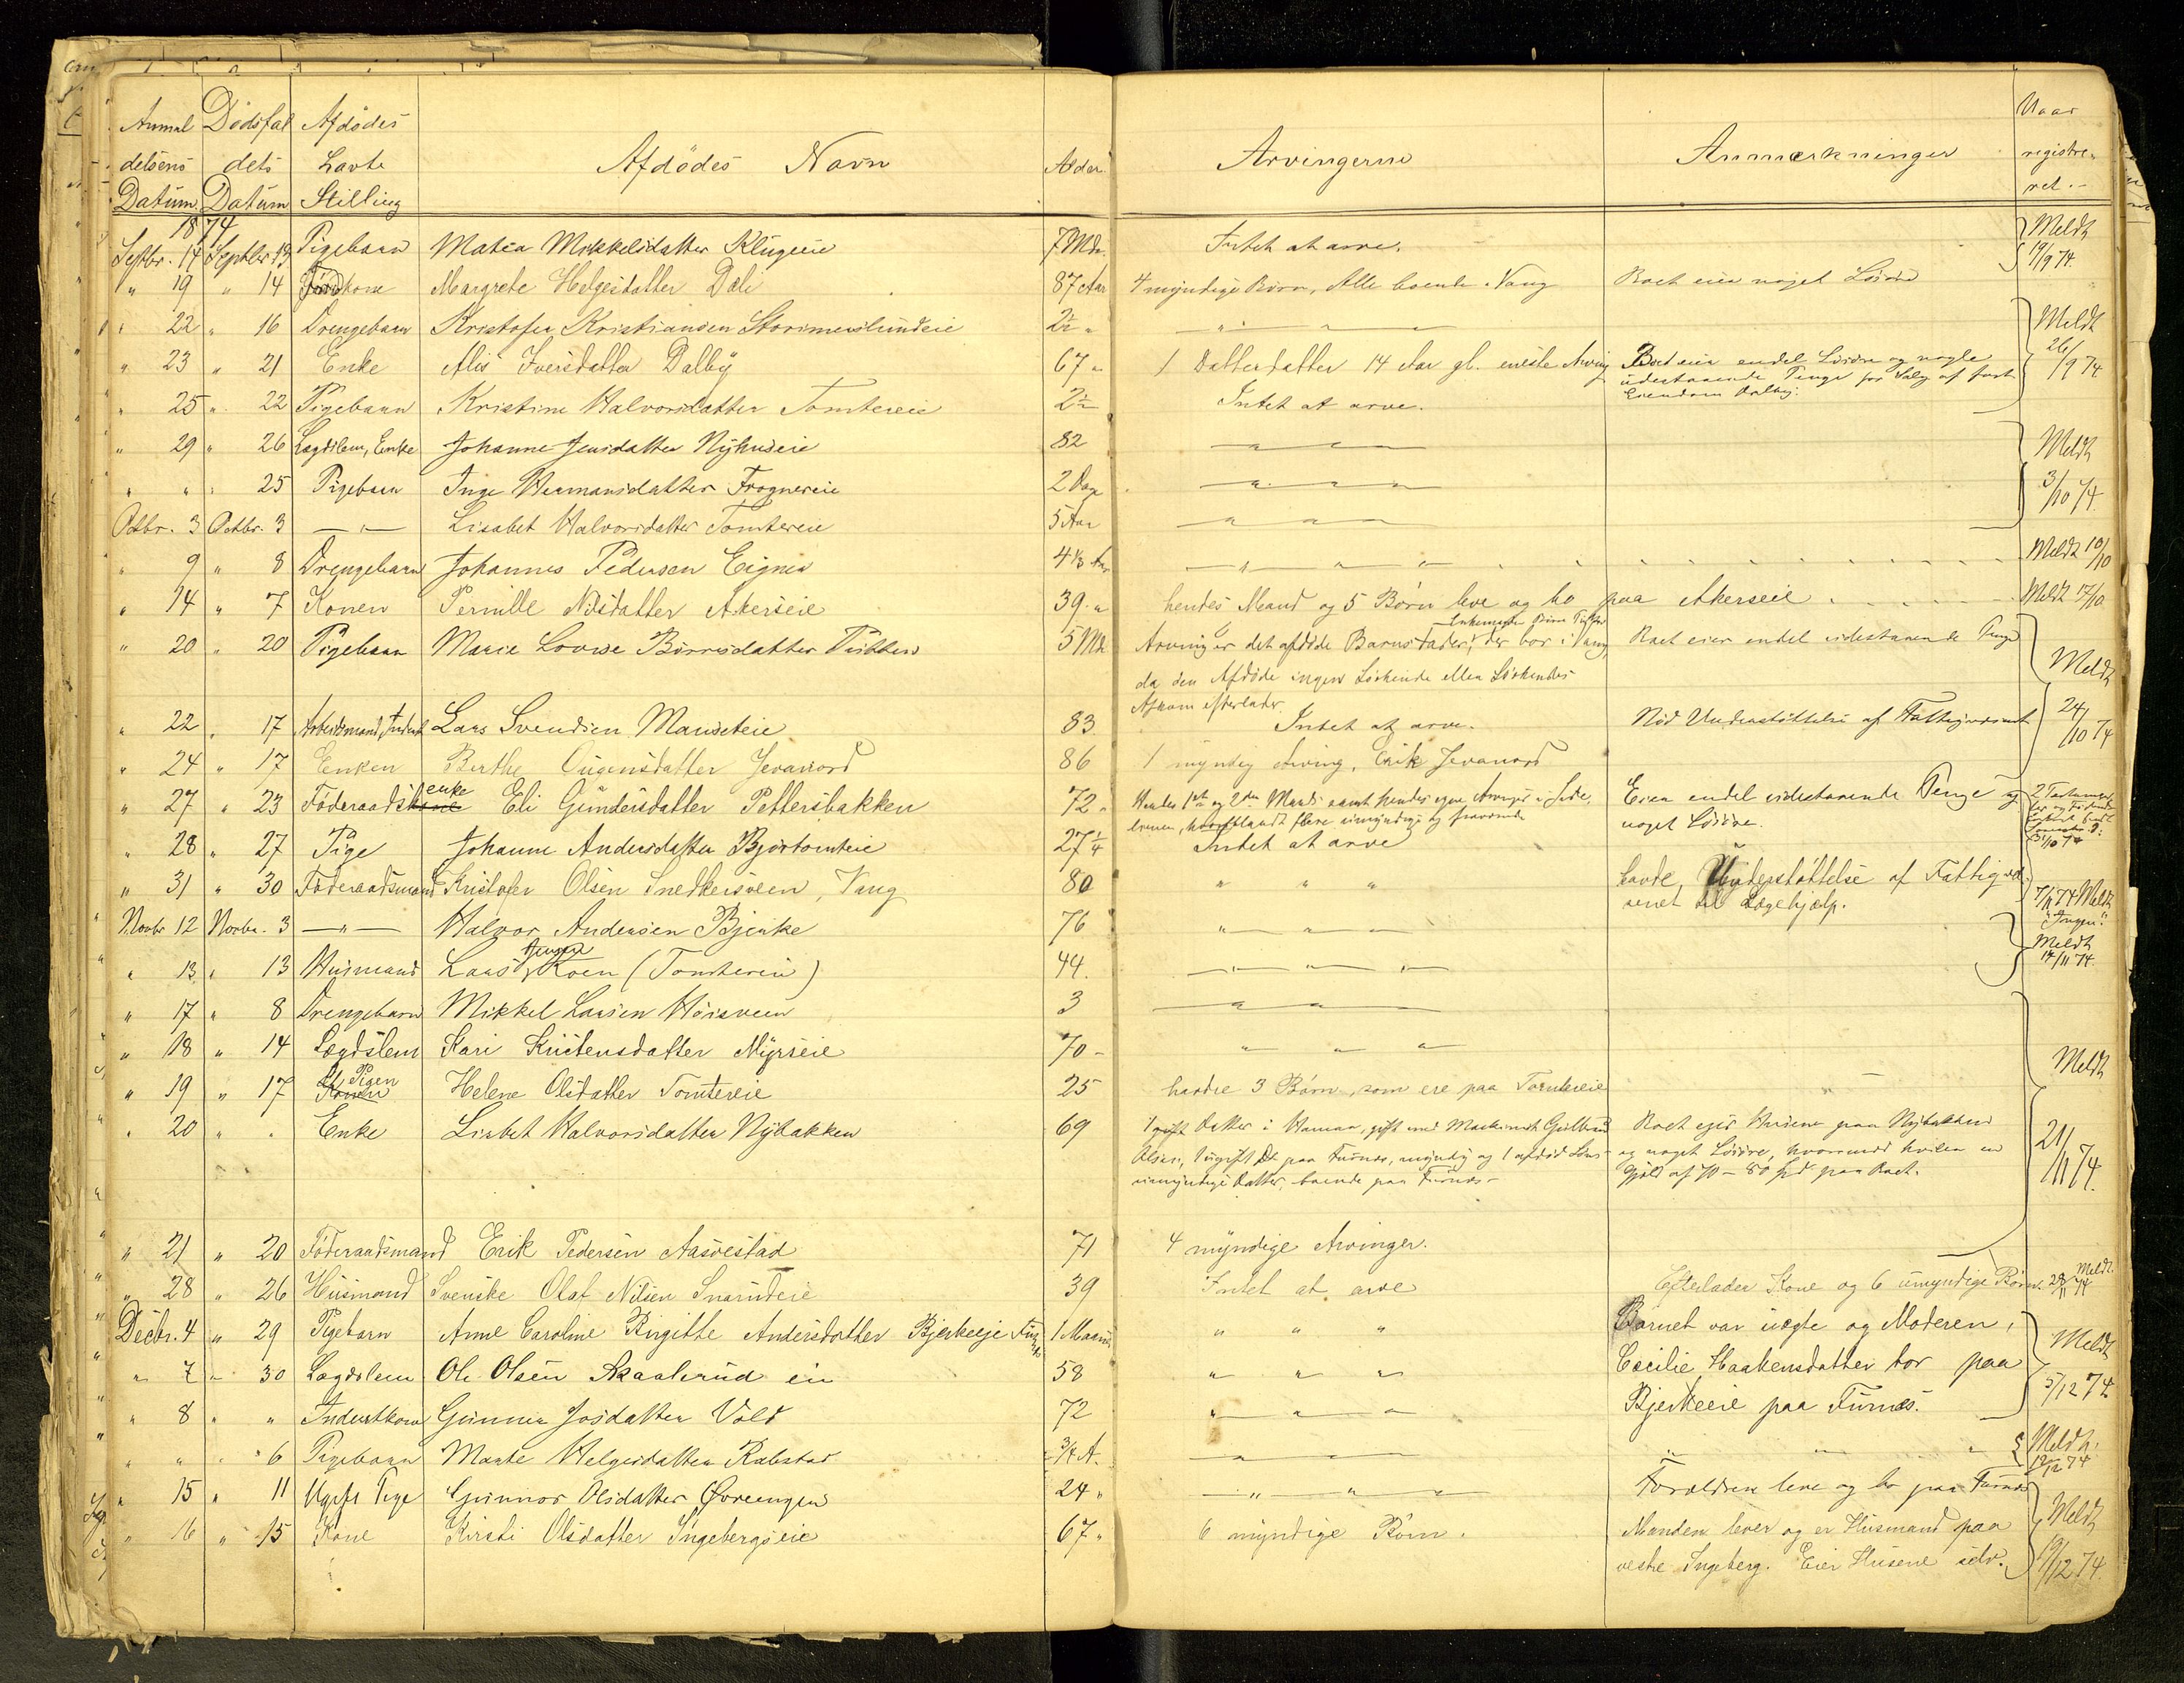 Anmel Dødsfal Afdødes Naar
delsens dets Lavte Afdødes Navn Alder Arvingerne Anmærkninger registre-
Datum. Datum Stilling ret.-
1874
Septbr. 14 Septbr 13 Pigebarn Matea Mikkelsdatter Klugeie 7 Md. Intet at arve. Meldt 19/9 74.
" 19 " 14 kone Margrete Helgesdatter Dæli 87 Aar 4 myndige Børn, Alle boende Vang Boet eier noget Løsøre
" 22 " 16 Drengebarn Kristofer Kristiansen 2½ " — " — " — " — Meldt
" 23 " 21 Enke Alis Iversdatter Dalby 67 " 1 Datterdatter 14 Aar gl. eneste Arving Boet eier endel Løsøre og nogle 26/9 74
udestaaende Penge for Salg af fast
Eiendom Dalby.
" 25 " 22 Pigebarn Kristine Halvorsdatter Tomtereie 2½ Intet at arve.
" 29 " 26 Lægdslem, Enke Johanne Jensdatter Nyhuseie 82 — " — " — " — Meldt
" " " 25 Pigebarn Inge Hermansdatter Frognereie 2 Dage — " — " — " — 3/10 74.
Octbr. 3 Octbr. 3 — " — Lisabet Halvorsdatter Tomtereie 5 Aar — " — " — " —
" 9 " 8 Drengebarn Johannes Pedersen Eignes 4 ½ Aar — " — " — " — Meldt 10/10
" 14 " 7 Konen Pernille Nilsdatter Akerseie 39 " hendes Mand og 5 Børn leve og bo paa Akerseie Meldt 17/10
" 20 " 20 Pigebarn Marie Lovise Børresdatter 5 Md. Arving er det afdøde Barns Fader, der bor i Vang, Boet eier endel udestaaende Penge
da den Afdøde ingen Søskende eller Søskendes Meldt
Afkom efterlader.
" 22 " 17 Arbeidsmand, Inderst Lars Svendsen 83. Intet at arve. Nød Understøttelse af Fattigvæsenet 24/10 74
" 24 " 17 Enken Berthe Jevanord 86 1 myndig Arving, Erik Jevanord
" 27 " 23 Føderaadskone enke Eli Gundersdatter Pettersbakken 72 " Hendes 1ste og 2den Mands samt hendes egne Arvinger Eier endel udestaaende Penge og
hvoriblandt flere umyndige og fraværende noget Løsøre.
" 28 " 27 Pige Johanne Andersdatter 27¼ Intet at arve
" 31 " 30 Føderaadsmand Kristofer Olsen Snedkersveen, Vang 80 " " " havde Understøttelse af Fattigvæ-
senet til Lægehjælp. 7/11 74 Meldt
Novbr 12 Novbr. 3 — " — Halvor Andersen Bjerke 76 " — " — " — "Ingen".
" 13 " 13 Husmand Lars Koen (Tomtereie) 44. — " — " — " — Meldt 14/11 74.
" 17 " 8 Drengebarn Mikkel Larsen Høisveen 3 — " — " —
" 18 " 14 Lægdslem Kari Kristensdatter Myrseie 70 - " " "
" 19 " 17 Konen Pigen Helene Olsdatter Tomtereie 25 havde 3 Børn, som ere paa Tomtereie — " — Meldt
" 20 " " Enke Lisbet Halvorsdatter Nybakken 69 1 gift Datter i Hamar, gift med Maskinist Gulbrand Boet ejer Husene paa Nybakken 21/11 74.
Olsen, 1 ugift Dt paa Furnæs, myndig og 1 afdød Søns og noget Løsøre, hvorimod hviler en
umyndige Datter, boende paa Furnæs - Gjæld af 70 – 80 Spd paa Boet.
" 21 " 20 Føderaadsmand Erik Pedersen Aasvestad 71 4 myndige Arvinger.
" 28 " 26 Husmand Svenske Olaf Nilsen Snarudeie 39 Intet at arve Efterlader Kone og 6 umyndige Børn. Meldt 28/11 74
Decbr. 4 " 29 Pigebarn Anne Caroline Birgitte Andersdatter Bjerkeeje Furnæs 1 Maaned " " " Barnet var uægte og Moderen, Meldt
" 7 " 30 Lægdslem Ole Olsen Skaalerud eie 58 " " " Cecilie Haakensdatter bor paa 5/12 74
" 8 " " Inderstkone Gunner Josdatter Vold 72 " — " — " — Bjerkeeie paa Furnæs.
" " " 6 Pigebarn Marte Helgesdatter Kabstad ¾ A. — " — " — " " " Meldt 12/12 74
" 15 " 11 Ugift Pige Gunnor Olsdatter Øvreengen 24 " — " — " — " — Forældrene leve og bo paa Furnæs
" 16 " 15 Kone Kirsti Olsdatter Ingebergseie 67 " 6 myndige Børn. Manden lever og er Husmand paa Meldt
vestre Ingeberg. Eier Husene selv. 19/12 74.